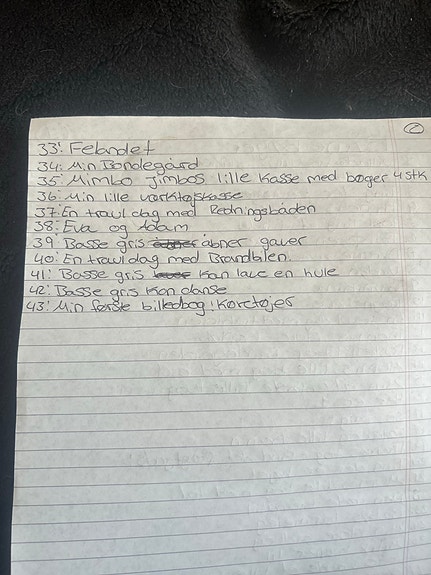 33: Felandet
34: Min Bondegård
35: Mimbo Jimbos lille kasse med bøger 4 stk
36: Min lille værktøjskasse
37: En travl dag med Redningsbåden
38: Eva og Adam
39 Basse gris åbner gaver
40: En travl dag med Brandbilen.
41: Basse gris kan lave en hule
42: Basse gris kan danse
43: Min første billedbog: Køretøjer